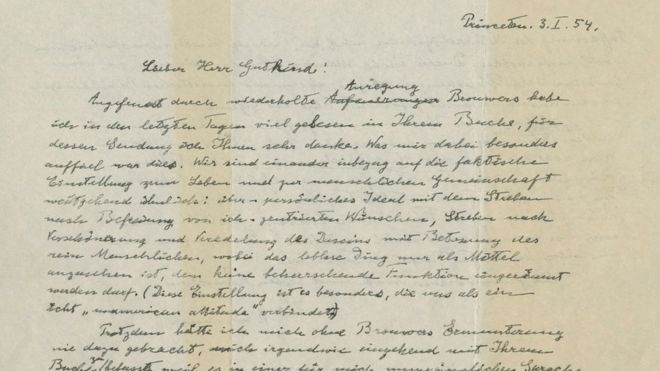 Princeton. 3. I. 54.
Lieber Herr Gutkind!
Anregung
Angefeuert durch wiederholte Brouwers habe
ich in den letzten Tagen viel gelesen in Ihrem Buche, für
dessen Sendung ich Ihnen sehr danke. Was mir dabei besonders
auffiel war dies. Wir sind einander inbezug auf die faktische
Einstellung zum Leben und zur menschlichen Gemeinschaft
weitgehend ähnlich: über-persönliches Ideal mit dem Streben
nach Befreiung von ich-zentrierten Wünschen, Streben nach
Verschönerung und Veredelung des Daseins mit Betonung des
rein Menschlichen, wobei das leblose Ding nur als Mittel
anzusehen ist, dem keine beherrschende Funktion eingeräumt
werden darf. (Diese Einstellung ist es besonders, die uns als ein
echt „unamerican attitude" verbindet)
Trotzdem hätte ich mich ohne Brouwers Ermunterung
nie dazu gebracht, mich irgendwie eingehend mit Ihrem
Buche zu weil es in einer für mich